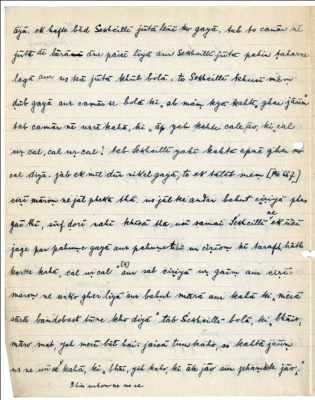 āyā. ek hafte bād Sekhcillī jūtā lene ko gayā. tab to camār ne
jūtā de ārā āne paise liyā aur Sekhcillī jūtā pahin
lagā aur us kā jūtā khūb bolā. to Sekhcillī
dil gayā aur camār se bolā ki, ab maiṃ kyā kahtā, ghar jāūṃ
tab camār ne use kahā, ki, "āp yah kahte cale jāo, ki, cal
ur cal, cal ur cal! tab Sekhcillī yahī kahtā apnā ghar ko
cal diyā. jab ek mīl dūr nikal gayā, to ek
cirī māroṃ ne jāl phekā thā, us jāl ke andar bahut ciriyā phas
gaī thī, sirf ḍorī rahī thā, usī samai Sekhcillī ne ek
jage par pahuṃc gayā aur pahuṃc ciriyoṃ kī taraf hāth
karke kahā, cal ur cal aur sab ciriyā uṛ gaīṃ aur cirī
māroṃ ne usko gher liyā aur bahut mārā aur kahā ki, "merā
sārā bandobast tūne kho diyā" tab Sekhcillī bolā, ki, bhāio,
māro mat, yah merī bāt hai; jaisā tum kaho, so kahtā jāūṃ
us ne kahā, ki, bhāī, yih kaho, ki āte jāo aur phaṃste jāo,"